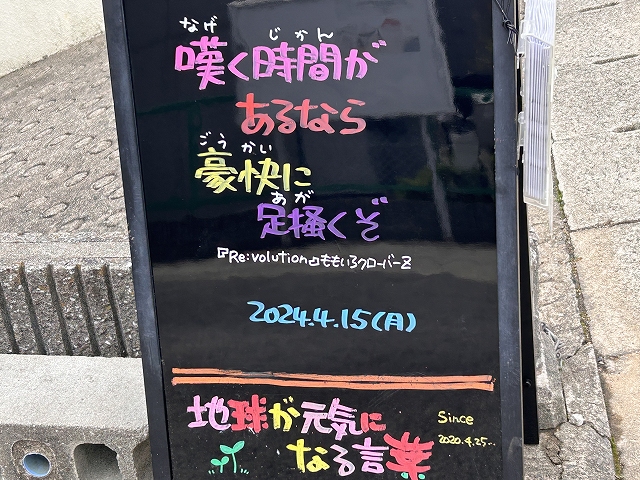 なげ じかん
嘆く時間が
あるなら
ごうかい
豪快に
あが
足掻くぞ
『Re:volution』ももいろクローバーZ
2024.4.15(月)
地球が元気に
なる言葉
Since
2020.4.25...